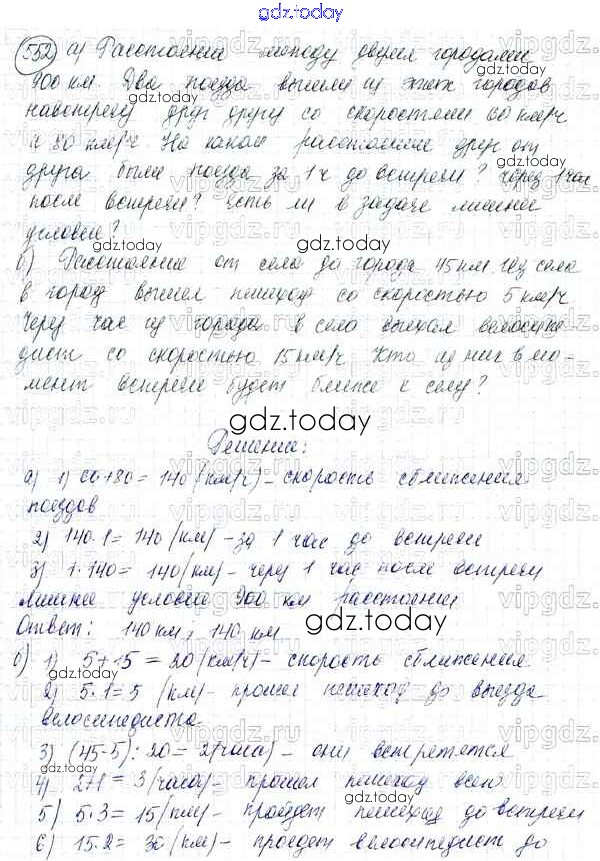 gdz.today
552 а) Расстояние между двумя городами
900 км. Два поезда вышли из этих городов
навстречу друг другу со скоростями 60 км/ч
и 80 км/ч. На каком расстоянии друг от
друга были поезда за 1 ч до встречи? через 1 час
после встречи? Есть ли в задаче лишнее
условие?
б) Расстояние от села до города 45 км. Из села
в город вышел пешеход со скоростью 5 км/ч
Через час из города в село выехал велосипе-
дист со скоростью 15 км/ч. Кто из них в мо-
мент встречи будет ближе к селу?
Решение:
а) 1) 60+80 = 140 (км/ч) - скорость сближения
поездов
2) 140·1 = 140 (км) - за 1 час до встречи
3) 1·140 = 140 (км) - через 1 час после встречи
Лишнее условие 900 км расстояние
Ответ: 140 км; 140 км
б) 1) 5+15 = 20 (км/ч) - скорость сближения
2) 5·1 = 5 (км) - прошел пешеход до выезда
велосипедиста
3) (45-5) : 20 = 2 (часа) - они встретятся
4) 2+1 = 3 (часа) - прошел пешеход всего
5) 5·3 = 15 (км) - пройдет пешеход до встречи
6) 15·2 = 30 (км) - проедет велосипедист до